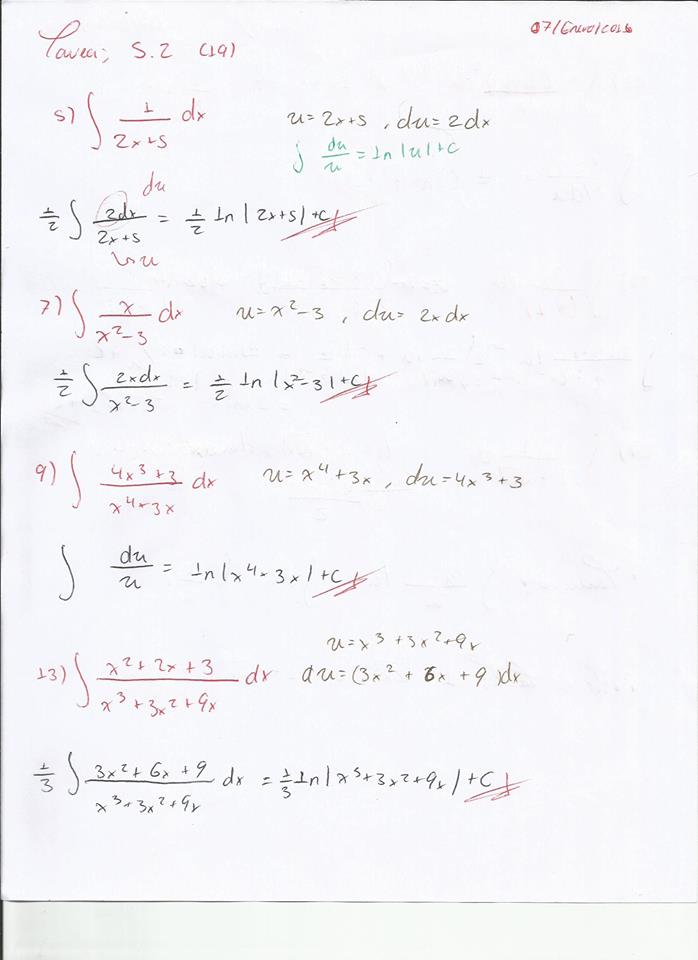 Tarea; 5.2 (19)
07/Enero/2016
5) ∫ 1/(2x+5) dx u = 2x+5 , du = 2dx
∫ du/u = ln|u|+C
du
1/2 ∫ 2dx/(2x+5) = 1/2 ln|2x+5|+C
↳ u
7) ∫ x/(x²-3) dx u = x²-3 , du = 2x dx
1/2 ∫ 2xdx/(x²-3) = 1/2 ln|x²-3|+C
9) ∫ (4x³+3)/(x⁴+3x) dx u = x⁴+3x , du = 4x³+3
∫ du/u = ln|x⁴+3x|+C
u = x³+3x²+9x
13) ∫ (x²+2x+3)/(x³+3x²+9x) dx du = (3x²+6x+9)dx
1/3 ∫ (3x²+6x+9)/(x³+3x²+9x) dx = 1/3 ln|x³+3x²+9x|+C